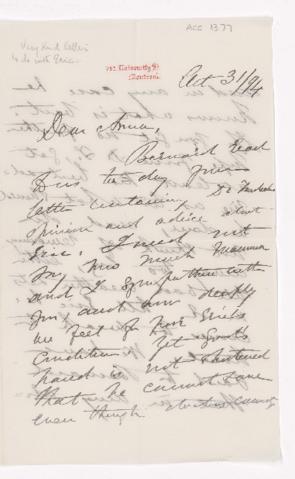 Very Kind Letter
to do with Eric
ACC 1377
University St
Montreal.
Oct 31/94
Dear Anna,
Bernard read
us to day your
letter containing Dr
opinion and advice about
Eric, I need not
say how much Mamma
and I sympathise with
you and how deeply
we feel for poor Eric's
condition. Yet God's
hand is not shortened
that he cannot save
even though